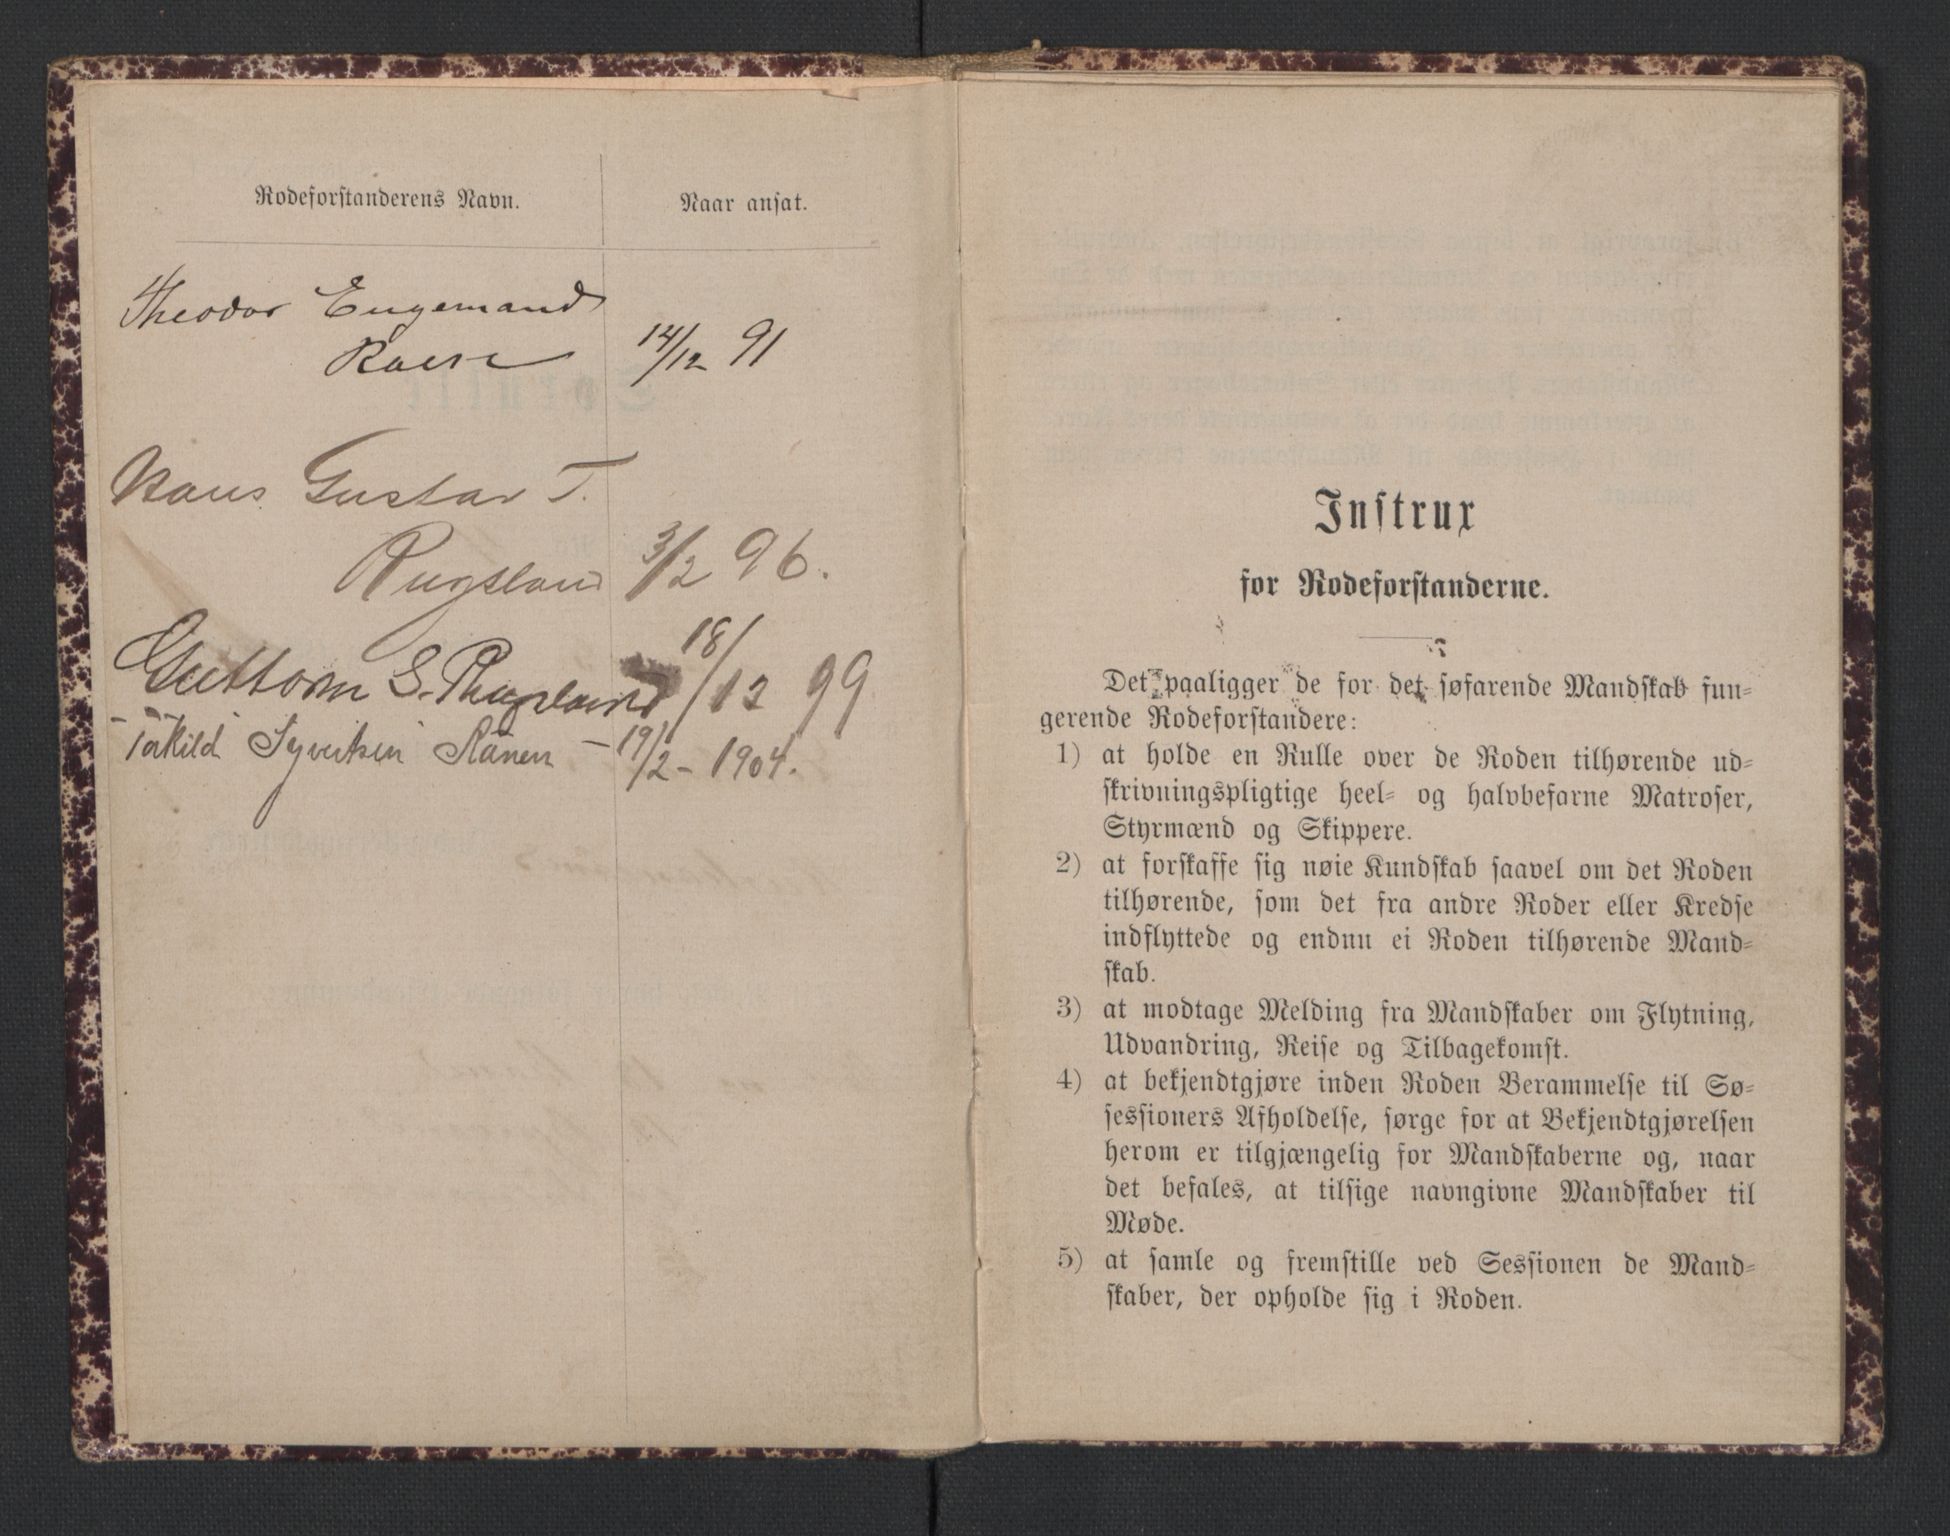 Rodeforstanderens Navn.
Naar ansat.
Theodor Engemand
14/12 91
Gustav T.
Rugsland 3/2 96.
Guttorm S. Rugsland 18/12 99
Syvertsen 19/2 - 1904.
Instrux
for Rodeforstanderne.
Det paaligger de for det søfarende Mandskab fun-
gerende Rodeforstandere:
1) at holde en Rulle over de Roden tilhørende ud-
skrivningspligtige heel- og halvbefarne Matroser,
Styrmænd og Skippere.
2) at forskaffe sig nøie Kundskab saavel om det Roden
tilhørende, som det fra andre Roder eller Kredse
indflyttede og endnu ei Roden tilhørende Mand-
skab.
3) at modtage Melding fra Mandskaber om Flytning,
Udvandring, Reise og Tilbagekomst.
4) at bekjendtgjøre inden Roden Berammelse til Sø-
sessioners Afholdelse, sørge for at Bekjendtgjørelsen
herom er tilgjængelig for Mandskaberne og, naar
det befales, at tilsige navngivne Mandskaber til
Møde.
5) at samle og fremstille ved Sessionen de Mand-
skaber, der opholde sig i Roden.